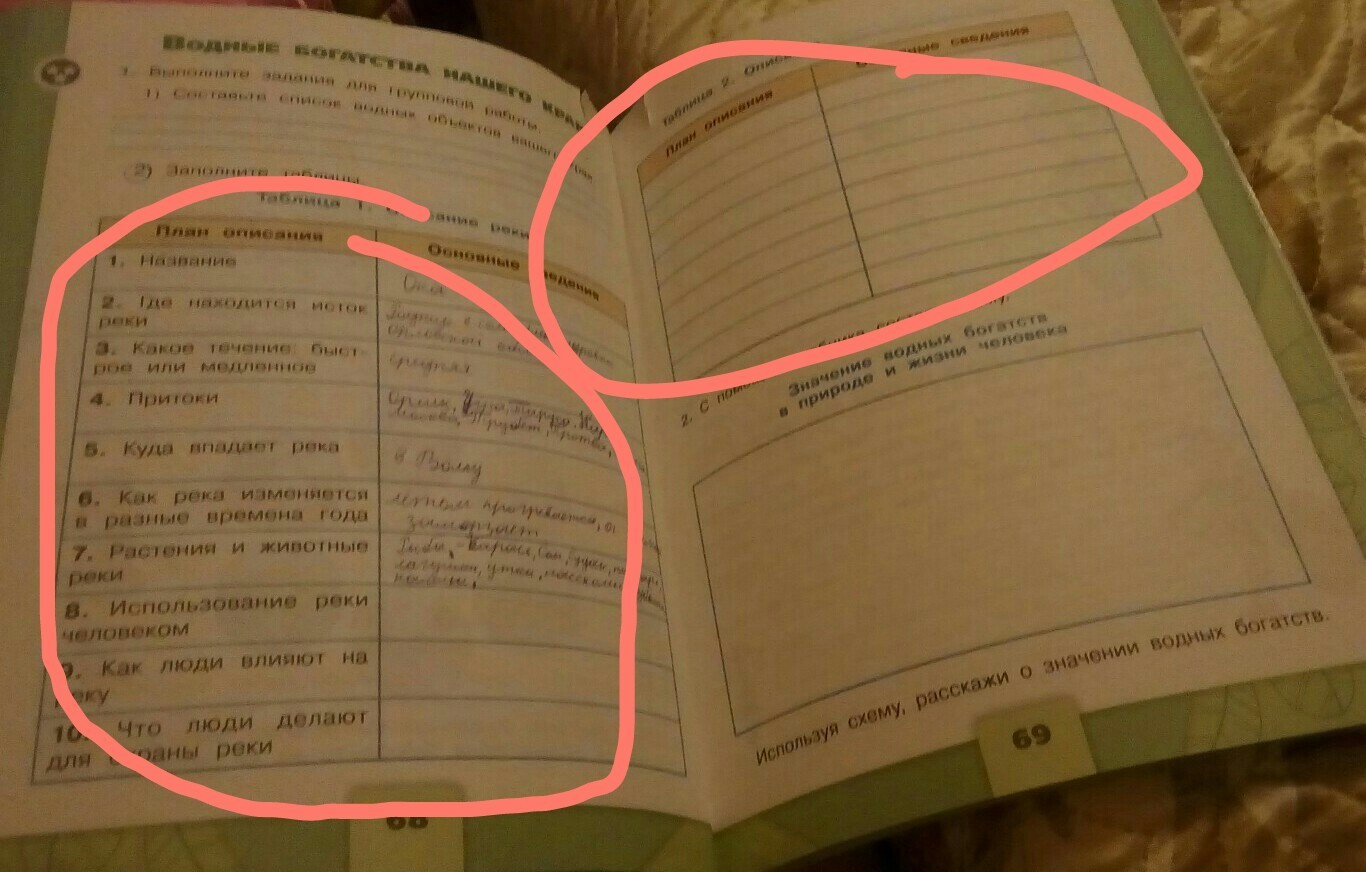 Водные богатства нашего
1. Выполните задания для групповой работы.
1) Составьте список водных объектов вашего
2) Заполните таблицы.
Таблица 1.
План описания
Основные
1. Название
Ока
2. Где находится исток
реки
3. Какое течение: быст-
рое или медленное
средняя
4. Притоки
5. Куда впадает река
в Волгу
6. Как река изменяется
в разные времена года
летом прогревается,
замерзает
7. Растения и животные
реки
8. Использование реки
человеком
9. Как люди влияют на
реку
10. Что люди делают
для охраны реки
68
Таблица 2.
План описания
сведения
2. С
Значение водных богатств
в природе и жизни человека
Используя схему, расскажи о значении водных богатств.
69